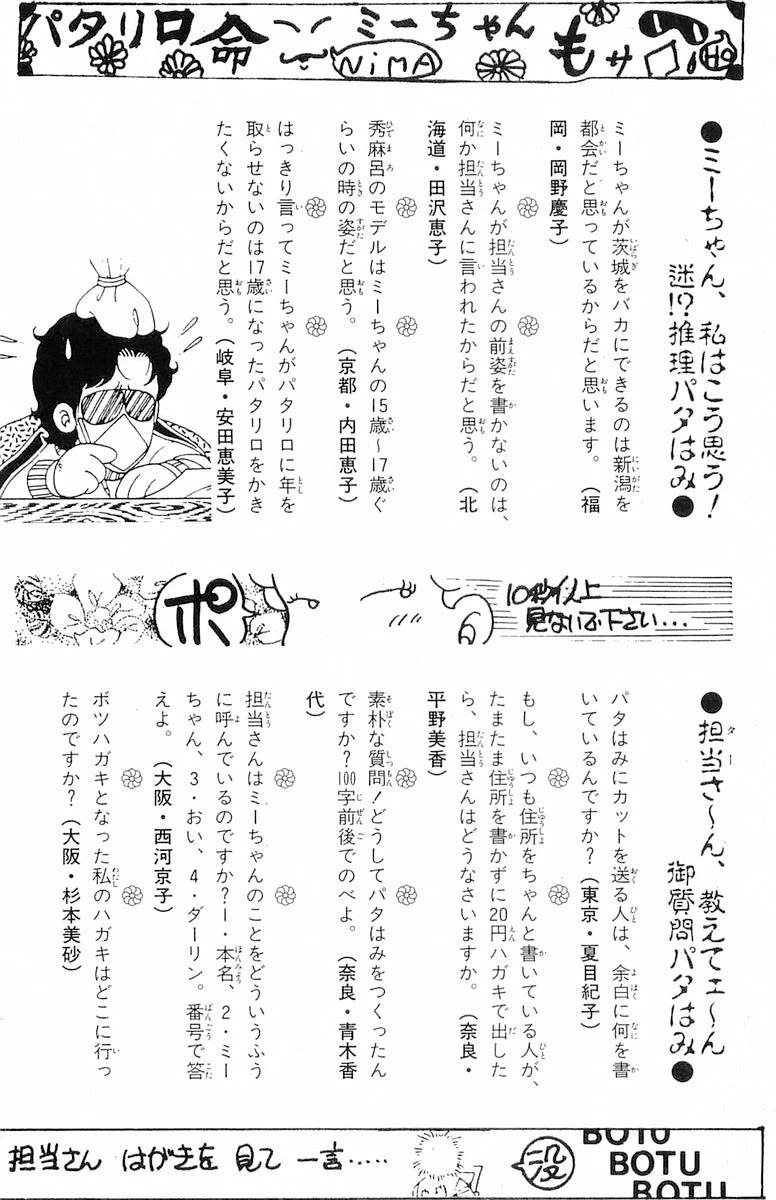 パタリロ命 ミーちゃん
NiMA
も
●ミーちゃん、私はこう思う！
迷!?推理パタはみ●
ミーちゃんが茨城をバカにできるのは新潟を
都会だと思っているからだと思います。（福
岡・岡野慶子）
ミーちゃんが担当さんの前姿を書かないのは、
何か担当さんに言われたからだと思う。（北
海道・田沢恵子）
秀麻呂のモデルはミーちゃんの15歳〜17歳ぐ
らいの時の姿だと思う。（京都・内田恵子）
はっきり言ってミーちゃんがパタリロに年を
取らせないのは17歳になったパタリロをかき
たくないからだと思う。（岐阜・安田恵美子）
ポ
10秒以上
見ないで下さい...
●担当さ〜ん、教えてェ〜ん
御質問パタはみ●
パタはみにカットを送る人は、余白に何を書
いているんですか？（東京・夏目紀子）
もし、いつも住所をちゃんと書いている人が、
たまたま住所を書かずに20円ハガキで出した
ら、担当さんはどうなさいますか。（奈良・
平野美香）
素朴な質問！どうしてパタはみをつくったん
ですか？100字前後でのべよ。（奈良・青木香
代）
担当さんはミーちゃんのことをどういうふう
に呼んでいるのですか？1・本名、2・ミー
ちゃん、3・おい、4・ダーリン。番号で答
えよ。（大阪・西河京子）
ボツハガキとなった私のハガキはどこに行っ
たのですか？（大阪・杉本美砂）
担当さん はがきを 見て 一言.....
没
BOTU
BOTU
BOTU